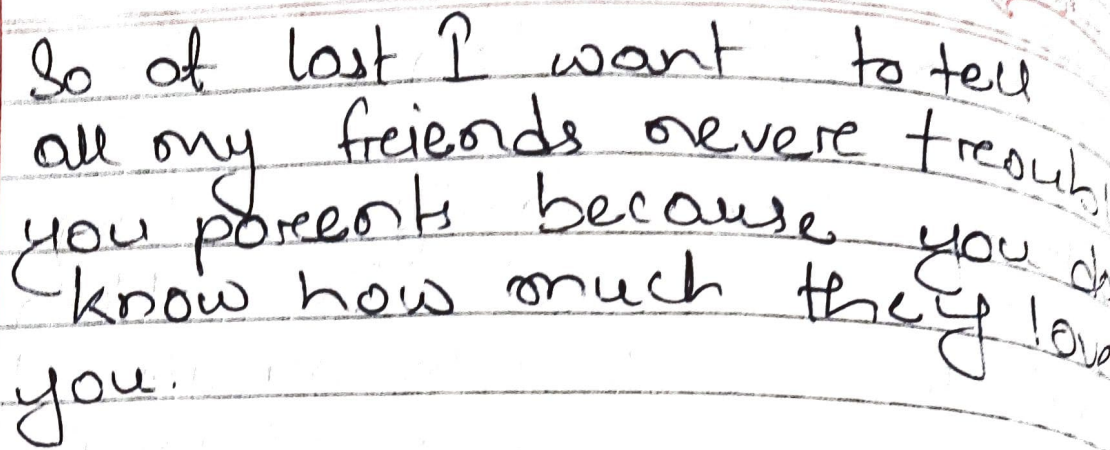 So at last I want to tell
all my freiends never
you parents because you
know how much they love
you.